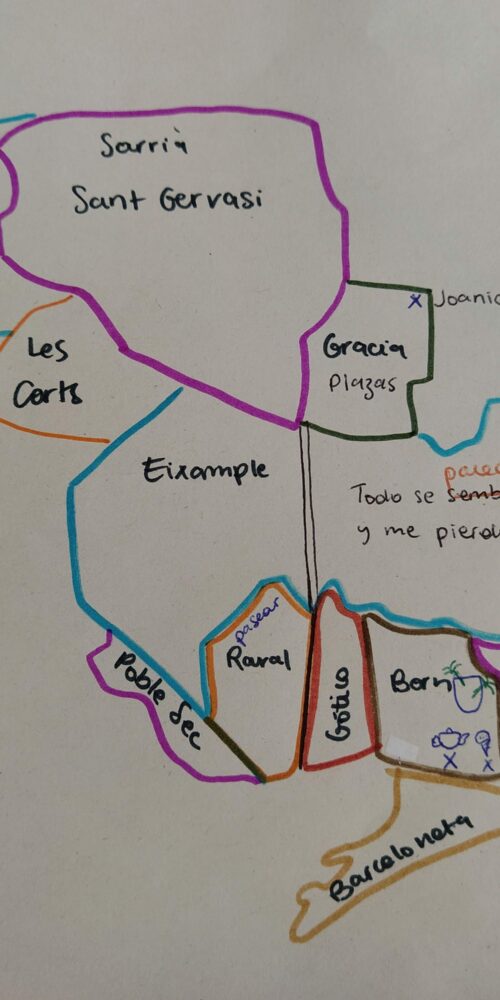 Sarrià
Sant Gervasi
Les
Corts
Gracia
Plazas
Eixample
Todo se
y me
pasear
Raval
Poble Sec
Gótico
Born
Barceloneta